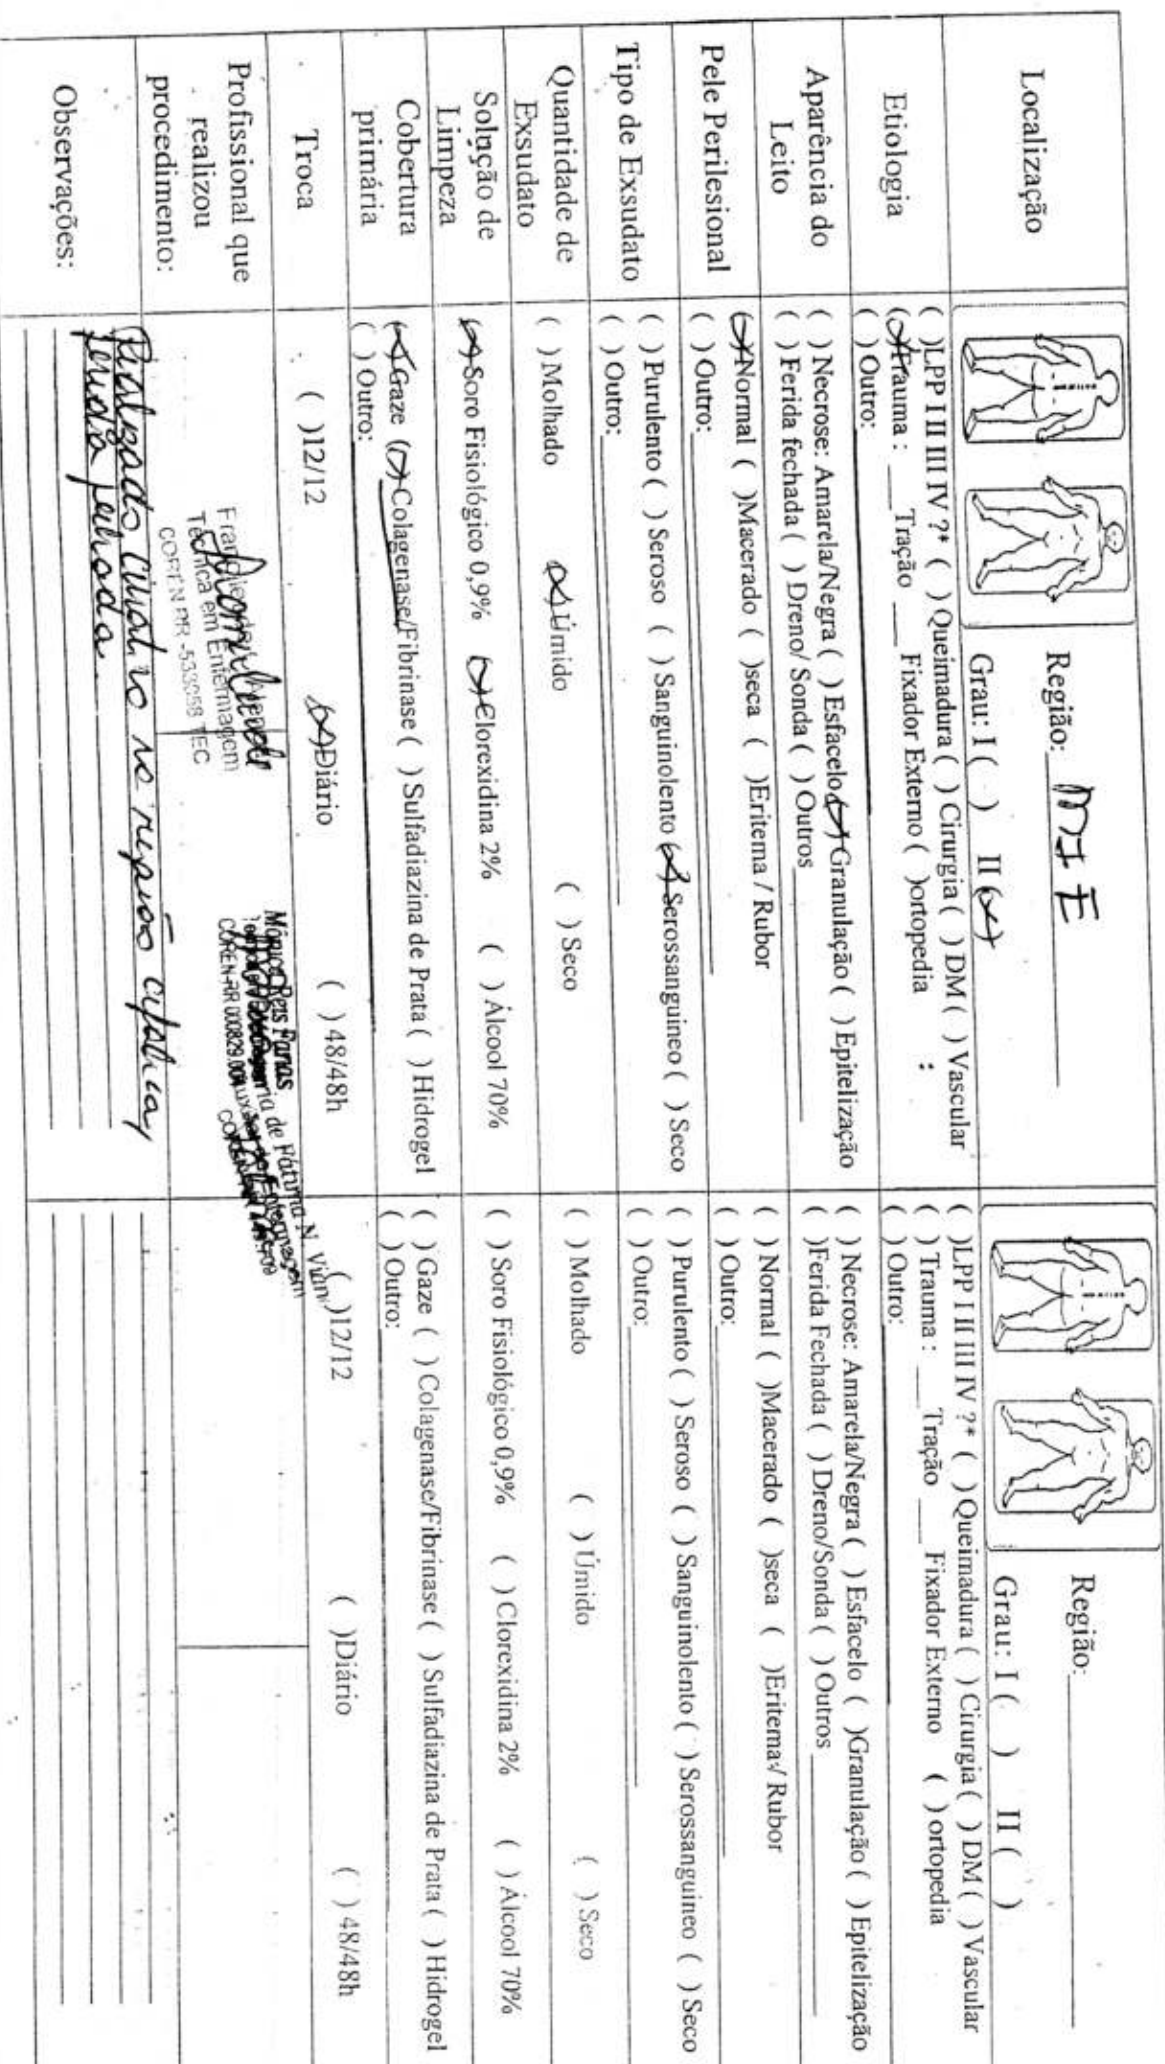 Localização
Região: MIE
Grau: I ( ) II (x)
Região:
Grau: I ( ) II ( )
Etiologia
( )LPP I II III IV ?* ( ) Queimadura ( ) Cirurgia ( ) DM ( ) Vascular
(x)Trauma : ___ Tração ___ Fixador Externo ( )ortopedia :
( ) Outro:
( )LPP I II III IV ?* ( ) Queimadura ( ) Cirurgia ( ) DM ( ) Vascular
( ) Trauma : ___ Tração ___ Fixador Externo ( ) ortopedia
( ) Outro:
Aparência do
Leito
( ) Necrose: Amarela/Negra ( ) Esfacelo (x) Granulação ( ) Epitelização
( ) Ferida fechada ( ) Dreno/ Sonda ( ) Outros
( ) Necrose: Amarela/Negra ( ) Esfacelo ( )Granulação ( ) Epitelização
( )Ferida Fechada ( ) Dreno/Sonda ( ) Outros
Pele Perilesional
(x)Normal ( )Macerado ( )seca ( )Eritema / Rubor
( ) Outro:
( ) Normal ( )Macerado ( )seca ( )Eritema/ Rubor
( ) Outro:
Tipo de Exsudato
( ) Purulento ( ) Seroso ( ) Sanguinolento (x) Serossanguineo ( ) Seco
( ) Outro:
( ) Purulento ( ) Seroso ( ) Sanguinolento ( ) Serossanguineo ( ) Seco
( ) Outro:
Quantidade de
Exsudato
( ) Molhado (x) Úmido ( ) Seco
( ) Molhado ( ) Úmido ( ) Seco
Solução de
Limpeza
(x) Soro Fisiológico 0,9% (x) Clorexidina 2% ( ) Álcool 70%
( ) Soro Fisiológico 0,9% ( ) Clorexidina 2% ( ) Álcool 70%
Cobertura
primária
(x) Gaze (x) Colagenase/Fibrinase ( ) Sulfadiazina de Prata ( ) Hidrogel
( ) Outro:
( ) Gaze ( ) Colagenase/Fibrinase ( ) Sulfadiazina de Prata ( ) Hidrogel
( ) Outro:
Troca
( )12/12 (x)Diário ( ) 48/48h
( )12/12 ( )Diário ( ) 48/48h
Profissional que
realizou
procedimento:
Técnica em Enfermagem
COREN RR -533058 TEC
Mônica Reis Farias
COREN-RR 000829.004
Maria de Fátima N. Viana
Auxiliar de Enfermagem
Observações:
Realizado curativo na região cefalica,